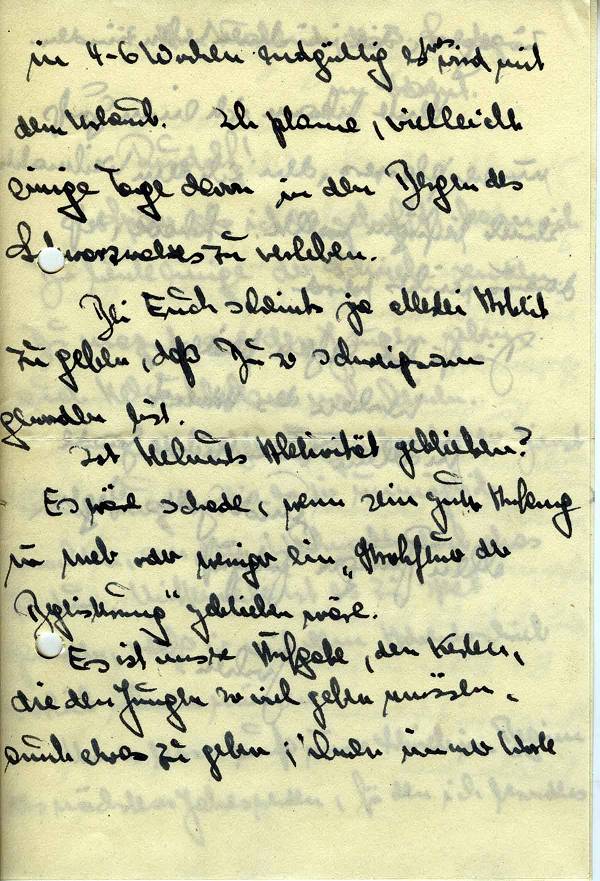 in 4-6 Wochen endgültig etwas wird mit
dem Urlaub. Ich plane, vielleicht
einige Tage davon in den Bergen des
Schwarzwaldes zu verleben.
Bei Euch scheint's ja allerlei Arbeit
zu geben, daß Du so schweigsam
geworden bist.
Ist Helmuts Aktivität geblieben?
Es wäre schade, wenn sein guter Anfang
nur mehr oder weniger ein „Strohfeuer der
Begeisterung" geblieben wäre.
Es ist unsre Aufgabe, den Kerlen,
die den Jungen so viel geben müssen,
auch etwas zu geben; ihnen immer